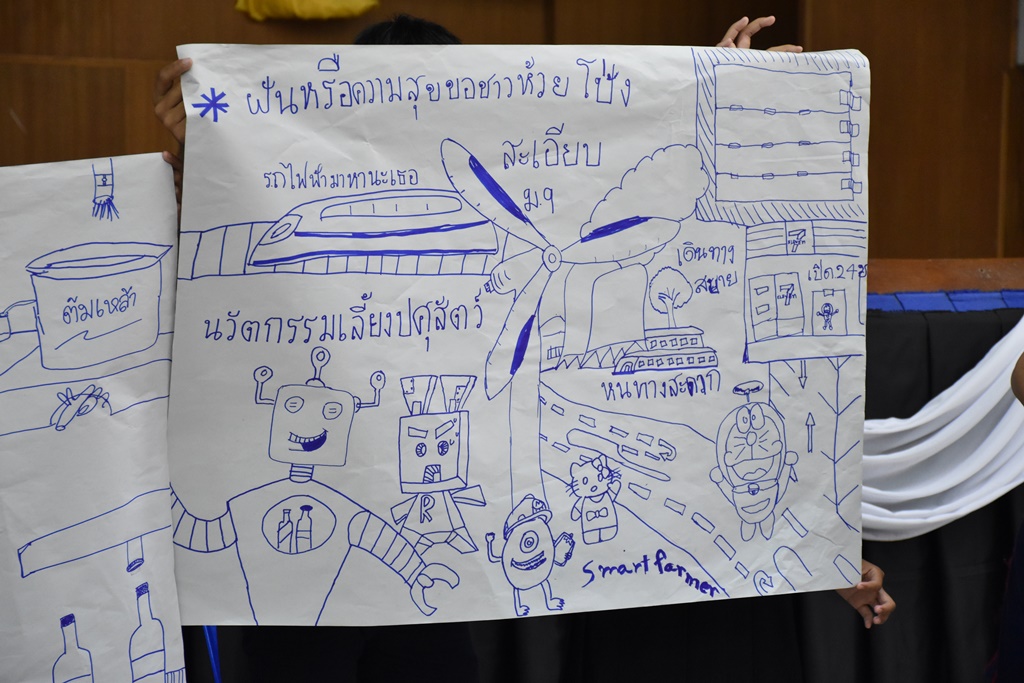 * ฝันหรือความสุขของชาวห้วย โป่ง
สะเอียบ
ม.๑
รถไฟฟ้ามาหานะเธอ
เดินทาง
สบาย
7
เปิด 24 ช
7
นวัตกรรมเลี้ยงปศุสัตว์
หนทางสะดวก
ต้มเหล้า
R
Smart farmer